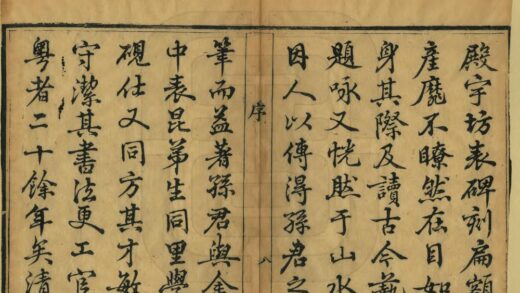 殿宇坊表碑刻扁額
產靡不瞭然在目如
身其際及讀古今藝
題咏又恍然于山水
因人以傳得孫君之
序
八
筆而益著孫君與余
中表昆弟生同里學
硯仕又同方其才敏
守潔其書法更工官
粵者二十餘年矣清